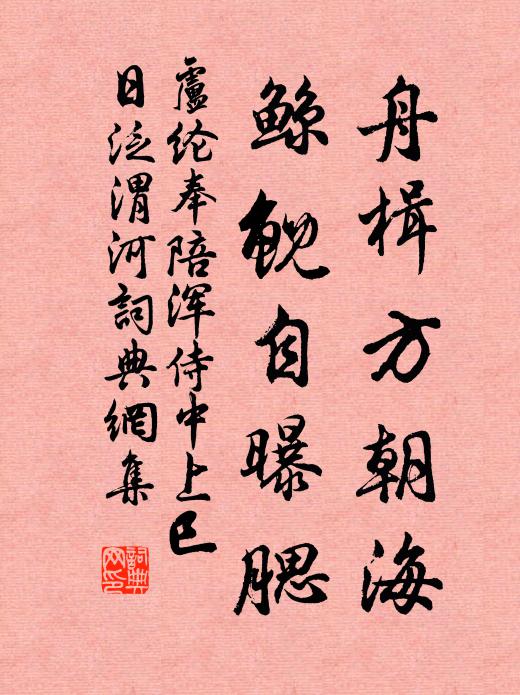 舟楫方朝海
鲸鲵自曝腮
盧纶奉陪浑侍中上巳
日泛渭河詞典網集
詞典
网印